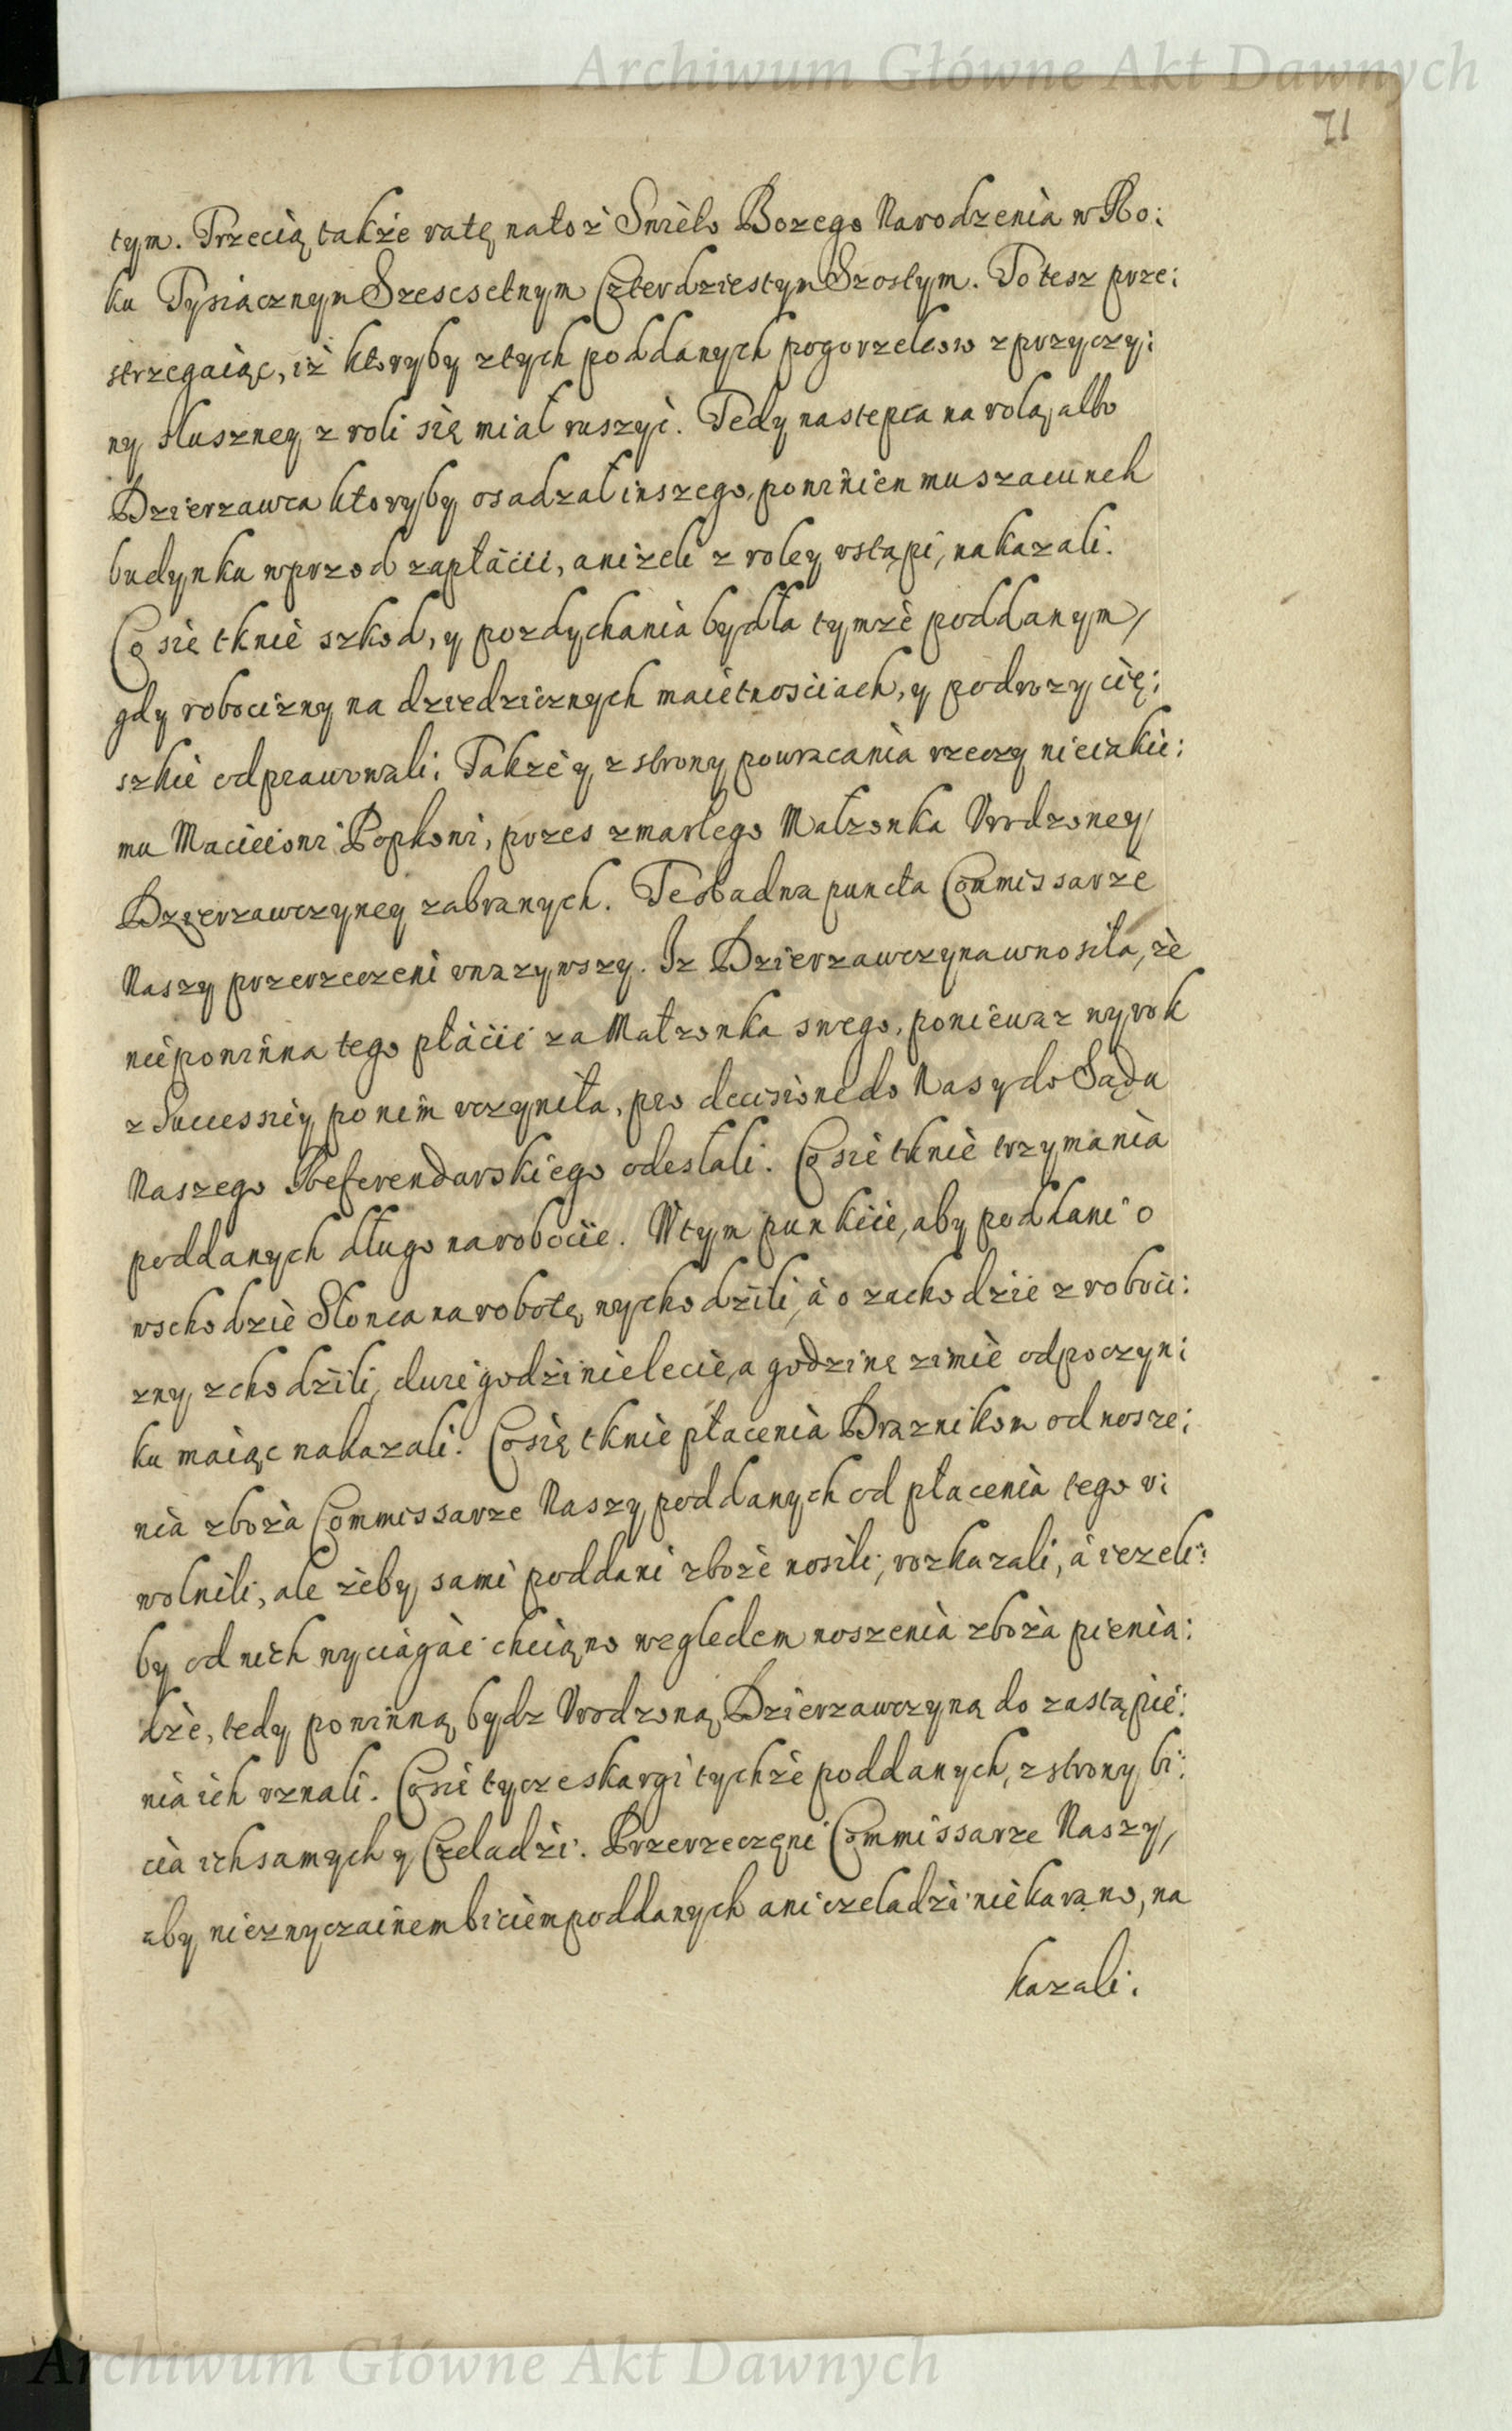 Archiwum Główne Akt Dawnych
71
tym. Trzecią także ratę na toż Swięto Bozego Narodzenia w Ro:
ku Tysiącznym Szescsetnym Czterdziestym Szostym. To tesz prze:
strzegaiąc, iż ktoryby z tych poddanych pogorzelcow z przyczy:
ny słuszney z roli się miał ruszyć. Tedy nastepca na rolą, albo
Dzierzawca ktoryby osadzał inszego, powinien mu szacunek
budynku wprzod zapłacić, aniżeli z roley ustąpi, nakazali.
Co się tknie szkod, y pozdychania bydła tymże poddanym,
gdy robocizny na dziedzicznych maiętnosciach, y podrozy cię:
szkie odprawowali: Także y z strony powracania rzeczy nieiakie:
mu Macieiowi Popkowi, przes zmarłego Małzonka Urodzoney
Dzierzawczyney zabranych. Te obadwa puncta Commissarze
Naszy przerzeczeni uważywszy. Iz Dzierzawczyna wnosiła, że
nie powinna tego płacić za Małzonka swego, poniewaz wyrok
z Successiey po nim uczyniła, pro decisione do Nas y do Sądu
Naszego Referendarskiego odesłali. Co się tknie trzymania
poddanych długo na robocie. W tym punkcie, aby poddani o
wschodzie Słonca na robotę wychodzili, à o zachodzie z roboci:
zny zchodzili, dwie godzinie lecie, a godzinę zimie odpoczyn:
ku maiąc nakazali. Co się tknie płacenia Braznikom od nosze:
nia zboża Commissarze Naszy poddanych od płacenia tego u:
wolnili, ale żeby sami poddani zboże nosili, rozkazali, à iezeli:
by od nich wyciągać chciano względem noszenia zboża pienią:
dze, tedy powinną bydz Urodzoną Dzierzawczyną do zastąpie:
nia ich uznali. Co się tycze skargi tychże poddanych, z strony bi:
cia ich samych y Czeladzi. Przerzeczeni Commissarze Naszy,
aby niezwyczainem biciem poddanych ani czeladzi nie karano, na
kazali.
Archiwum Główne Akt Dawnych